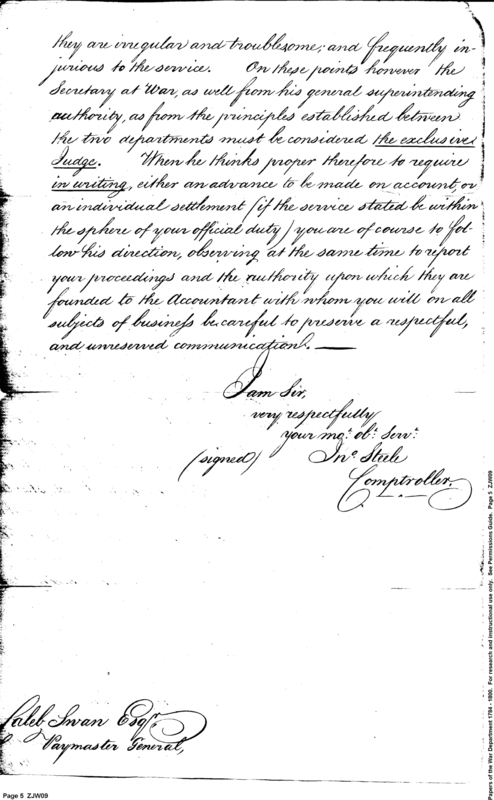 they are irregular and troublesome; and frequently in-
jurious to the service. On these points however the
Secretary at War, as well from his general superintending
authority, as from the principles established between
the two departments must be considered the exclusive
Judge. When he thinks proper therefore to require
in writing, either an advance to be made on account, or
an individual settlement (if the service stated be within
the sphere of your official duty) you are of course to fol-
low his direction, observing at the same time to report
your proceedings and the authority upon which they are
founded to the Accountant with whom you will on all
subjects of business be careful to preserve a respectful,
and unreserved communication. —
I am Sir,
very respectfully
your mo: ob: Serv:
(signed) Jno. Steele
Comptroller.
Caleb Swan Esqr.
Paymaster General,
Page 5 ZJW09
Papers of the War Department 1784 - 1800. For research and instructional use only. See Permissions Guide. Page 5 ZJW09